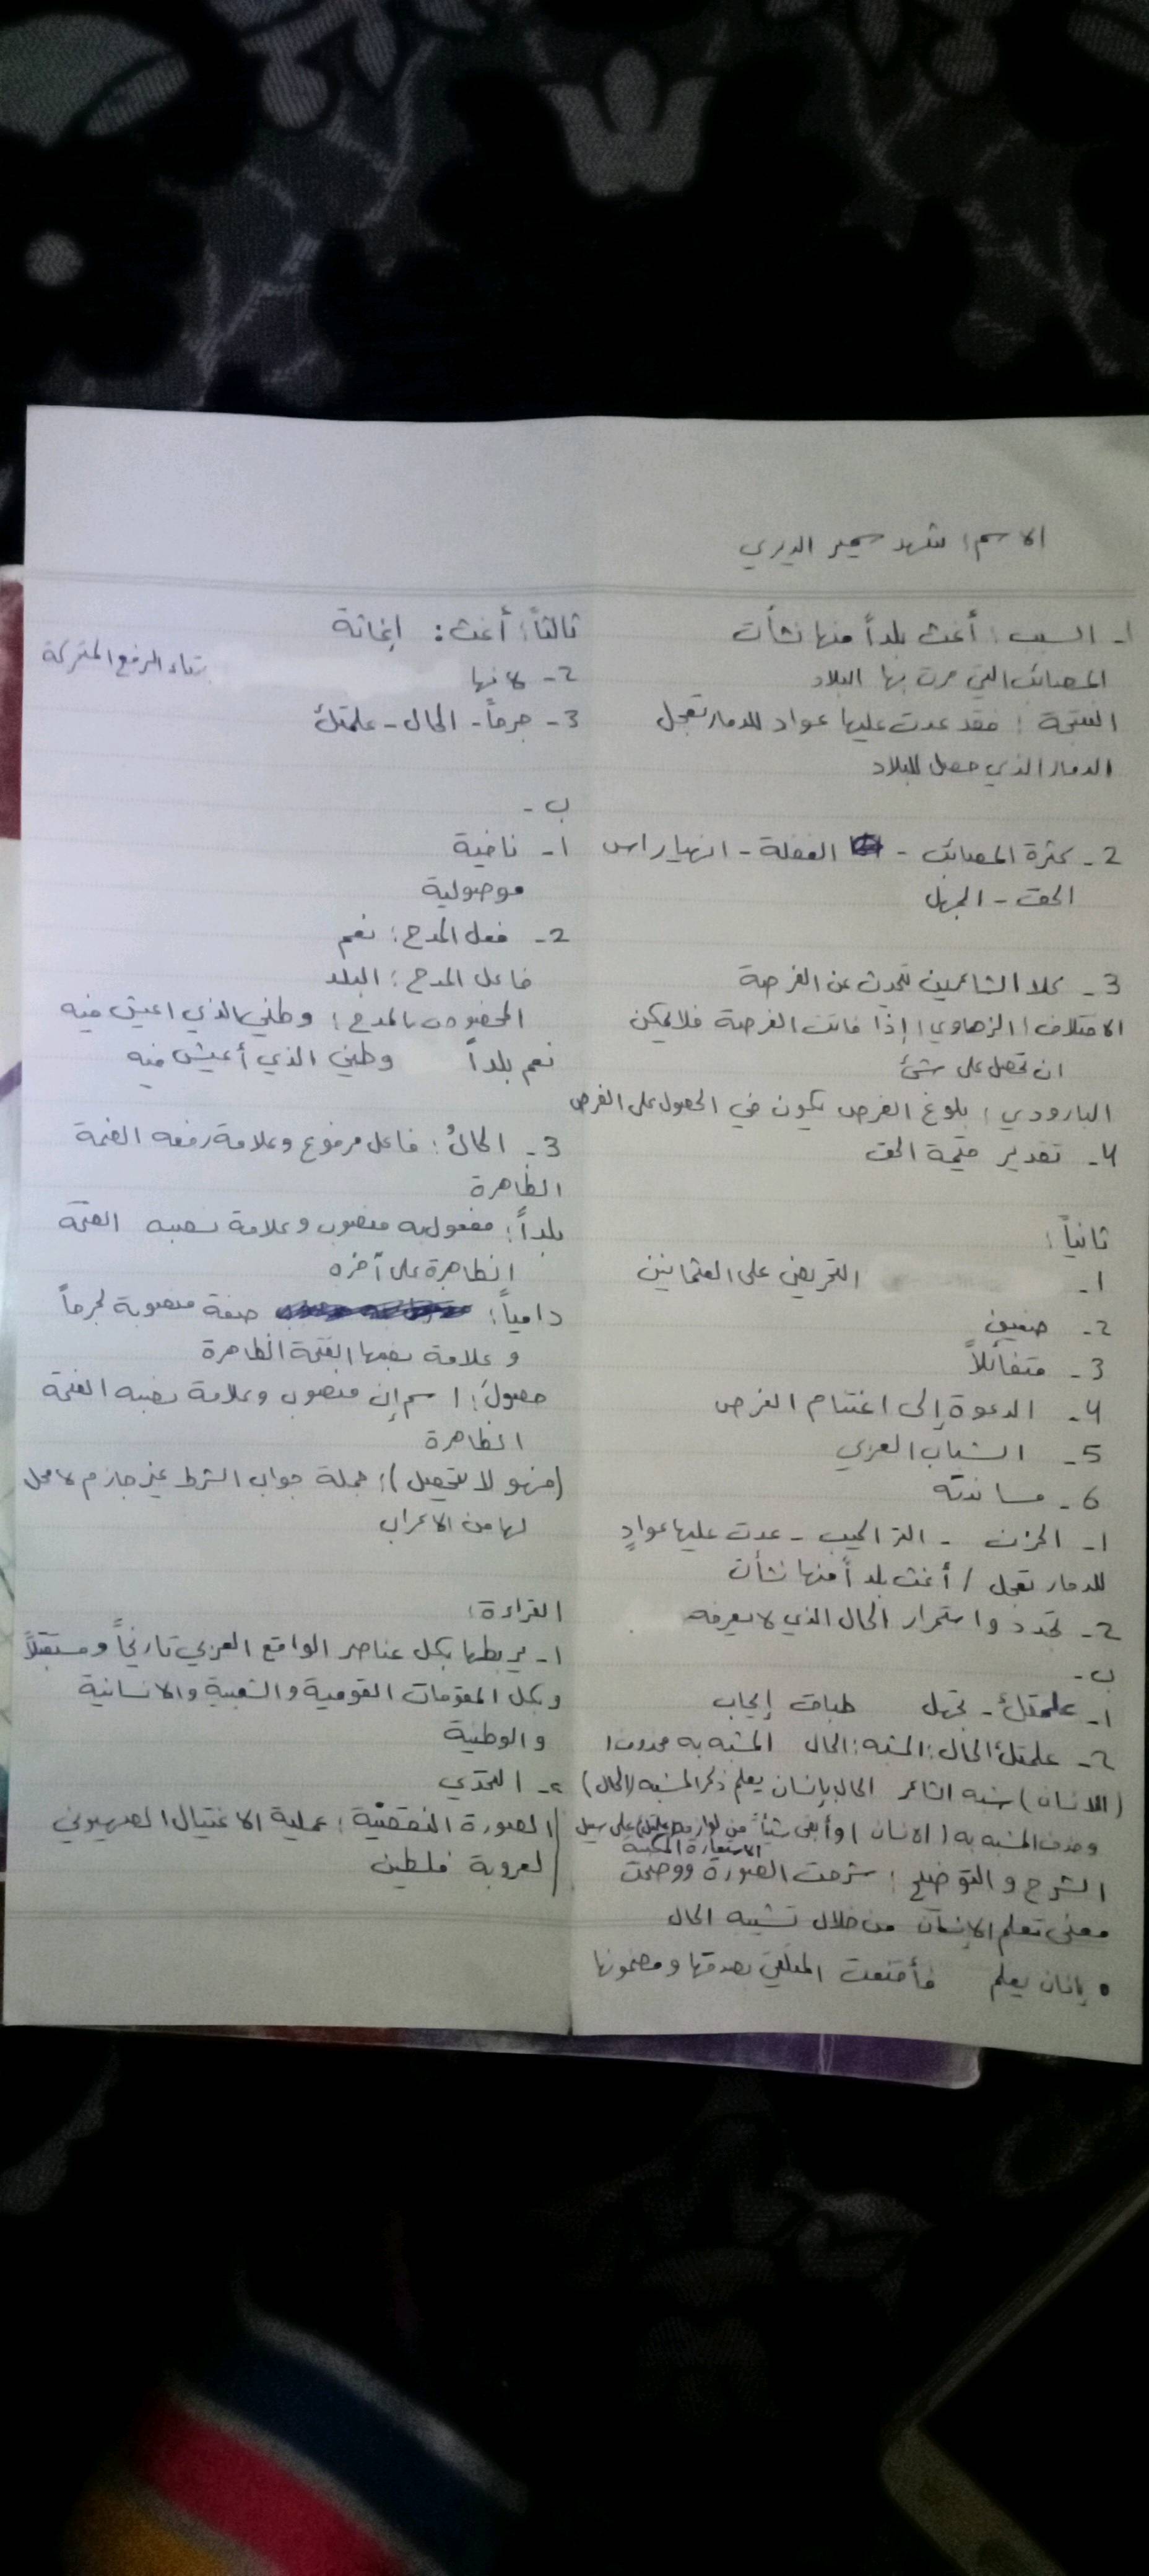 الاسم: شهد سمير الديري
1- السبب: أغث بلداً منها نشأت
المصائب التي مرت بها البلاد
النتيجة: فقد عدت عليها عواد للدمار تعجل
الدمار الذي حصل للبلاد
2- كثرة المصائب - الغفلة - انهيار اس
الحق - الجهل
3- كلا الشاعرين تحدث عن الفرصة
الاختلاف: الزهاوي: إذا فاتت الفرصة فلا يمكن
ان تحصل على شئ
البارودي: بلوغ الفرص يكون في الحصول على الفرص
4- تقدير قيمة الحق
ثانياً:
1- التحريض على العثمانين
2- ضعيف
3- متفائلاً
4- الدعوة إلى اغتنام الفرص
5- الشباب العربي
6- مساندته
1- الحزن - التراكيب - عدت عليها عوادٍ
للدمار تعجل / أغث بلداً منها نشأت
2- تجدد واستمرار الحال الذي لا يعرفه
ب-
1- علمتك - تجهل طباق إيجاب
2- علمتك الحال: المشبه: الحال المشبه به محذوف
(الانسان) شبه الشاعر الحال بإنسان يعلم ذكر المشبه (الحال)
وحذف المشبه به (الانسان) وأبقى شيئاً من لوازمه (علمتك) على سبيل
الاستعارة المكنية
الشرح والتوضيح: شرحت الصورة ووضحت
معنى تعلم الإنسان من خلال تشبيه الحال
بإنسان يعلم فأقنعت المتلقي بصدقها ومضمونها
ثالثاً: أغث: إغاثة
2- لانها بتاء الرفع المتحركة
3- جرحاً - الحال - علمتك
ب-
1- نافية
موصولية
2- فعل المدح: نعم
فاعل المدح: البلد
المخصوص بالمدح: وطني الذي اعيش فيه
نعم بلداً وطني الذي أعيش فيه
3- الحالُ: فاعل مرفوع وعلامة رفعه الضمة
الظاهرة
بلداً: مفعول به منصوب وعلامة نصبه الفتحة
الظاهرة على آخره
دامياً: صفة منصوبة لجرحاً
وعلامة نصبها الفتحة الظاهرة
حصولَ: اسم إن منصوب وعلامة نصبه الفتحة
الظاهرة
(فهو لا يتحصل): جملة جواب الشرط غير جازم لا محل
لها من الاعراب
القراءة:
1- يربطها بكل عناصر الواقع العربي تاريخاً ومستقبلاً
وبكل المقومات القومية والشعبية والانسانية
والوطنية
2- التحدي
الصورة النقضيّة: عملية الاغتيال الصهيوني
لعروبة فلسطين